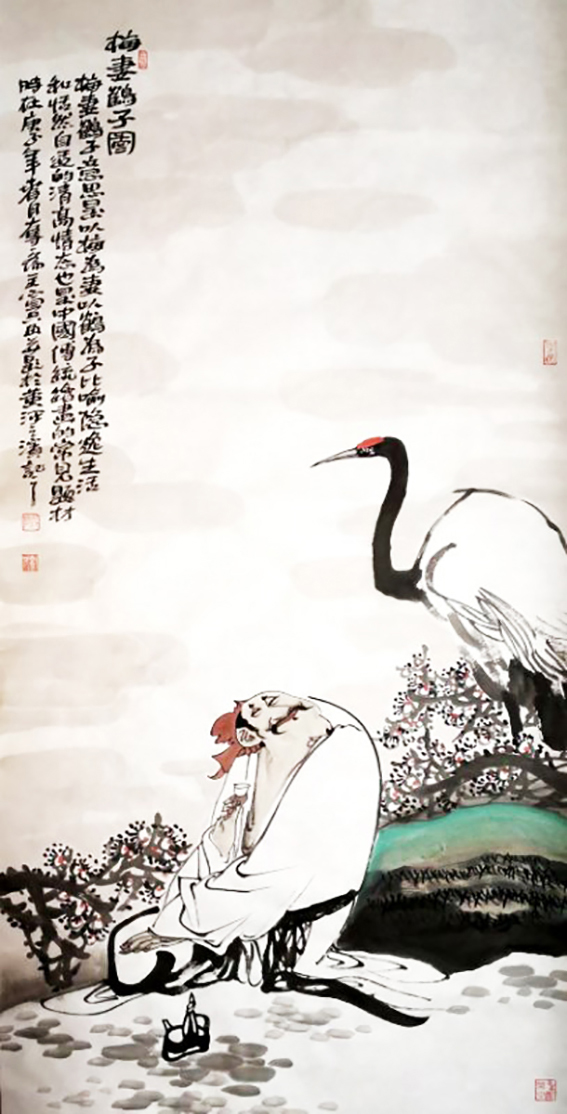 梅妻鶴子圖
梅妻鶴子意思是以梅為妻以鶴為子比喻隐逸生活
和恬然自适的清高情态也是中國傳統繪畫的常見題材
時在庚子年春月 主 於黄河之濱記